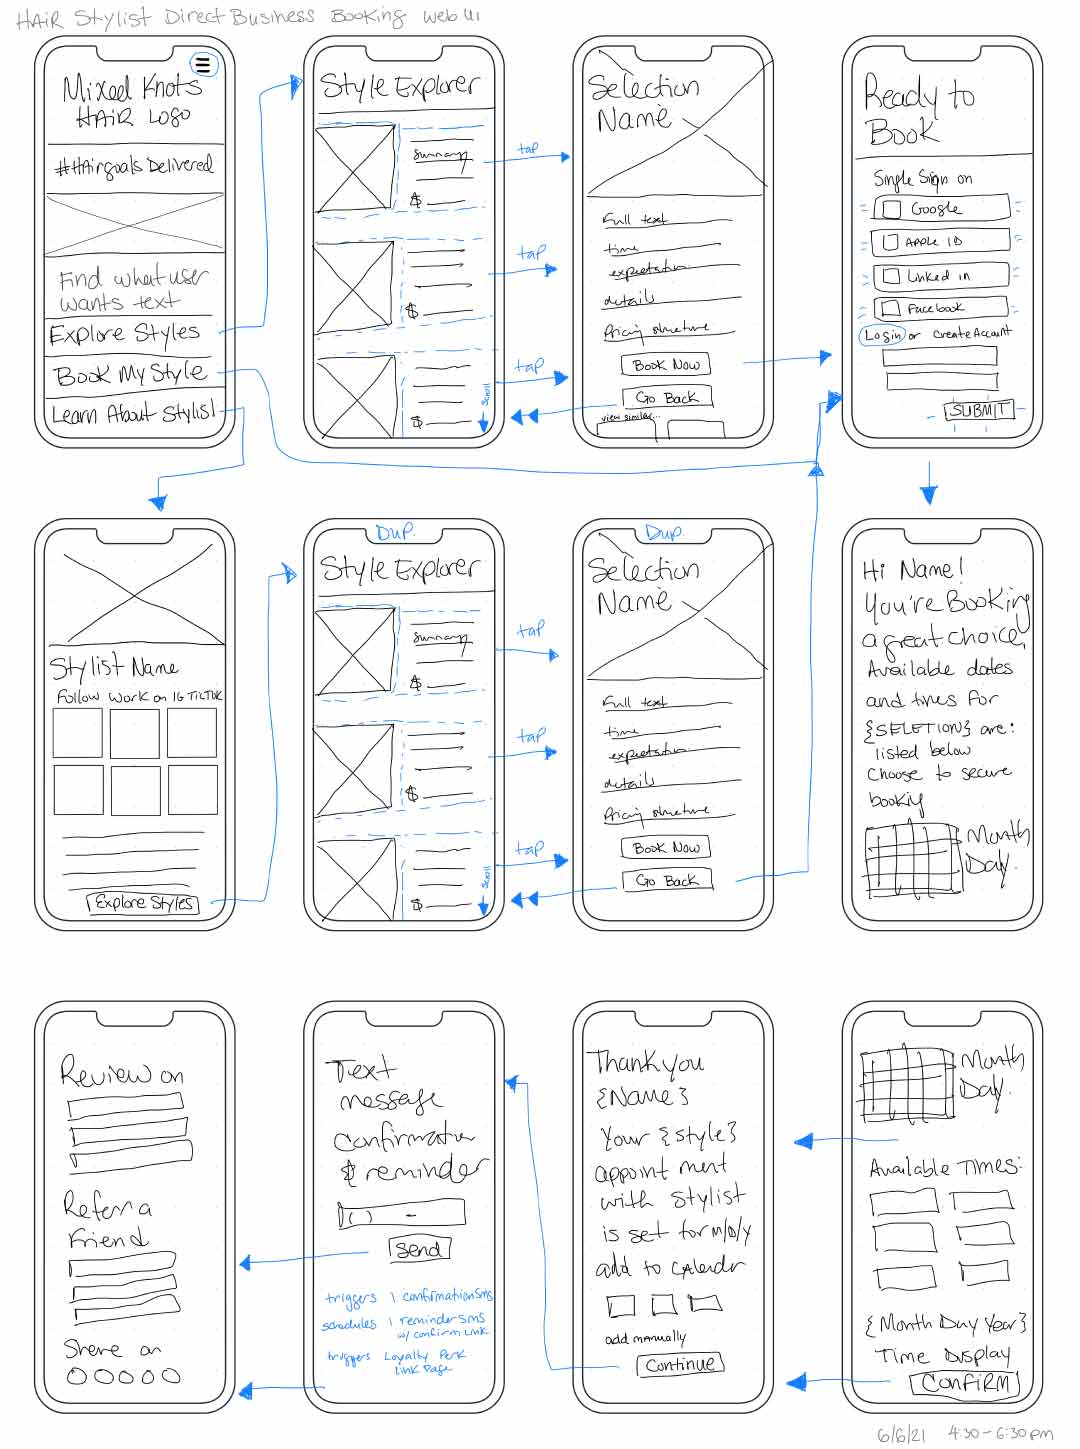 HAIR Stylist Direct Business Booking web UI
Mixed Knots
HAIR LOGO
#HAirgoals Delivered
Find what user
wants text
Explore Styles
Book My Style
Learn About Stylist
Style Explorer
Summary
$
$
$
Scroll
tap
tap
tap
Selection
Name
Full text
time
expectation
details
Pricing structure
Book Now
Go Back
view similar...
Ready to
Book
Single Sign on
Google
APPLE ID
Linked in
Facebook
Login or Create Account
SUBMIT
Stylist Name
Follow work on IG TIKTOK
Explore Styles
Dup.
Style Explorer
Summary
$
$
$
Scroll
tap
tap
tap
Dup.
Selection
Name
Full text
time
expectation
details
Pricing structure
Book Now
Go Back
Hi Name!
You're Booking
a great choice,
Available dates
and times for
{SELETION} are:
listed below
Choose to secure
bookiy
Month
Day.
Review on
Refer a
Friend
Share on
Text
message
Confirmation
& reminder
( ) -
Send
triggers 1 confirmation sms
schedules 1 reminder SMS
w/ confirm link
triggers Loyalty Perk
Link Page
Thank you
{Name}
Your {style}
appointment
with Stylist
is set for M/D/Y
add to CAlendr
add manually
Continue
Month
Day.
Available Times:
{Month Day Year}
Time Display
CONFIRM
6/6/21 4:30-6:30pm